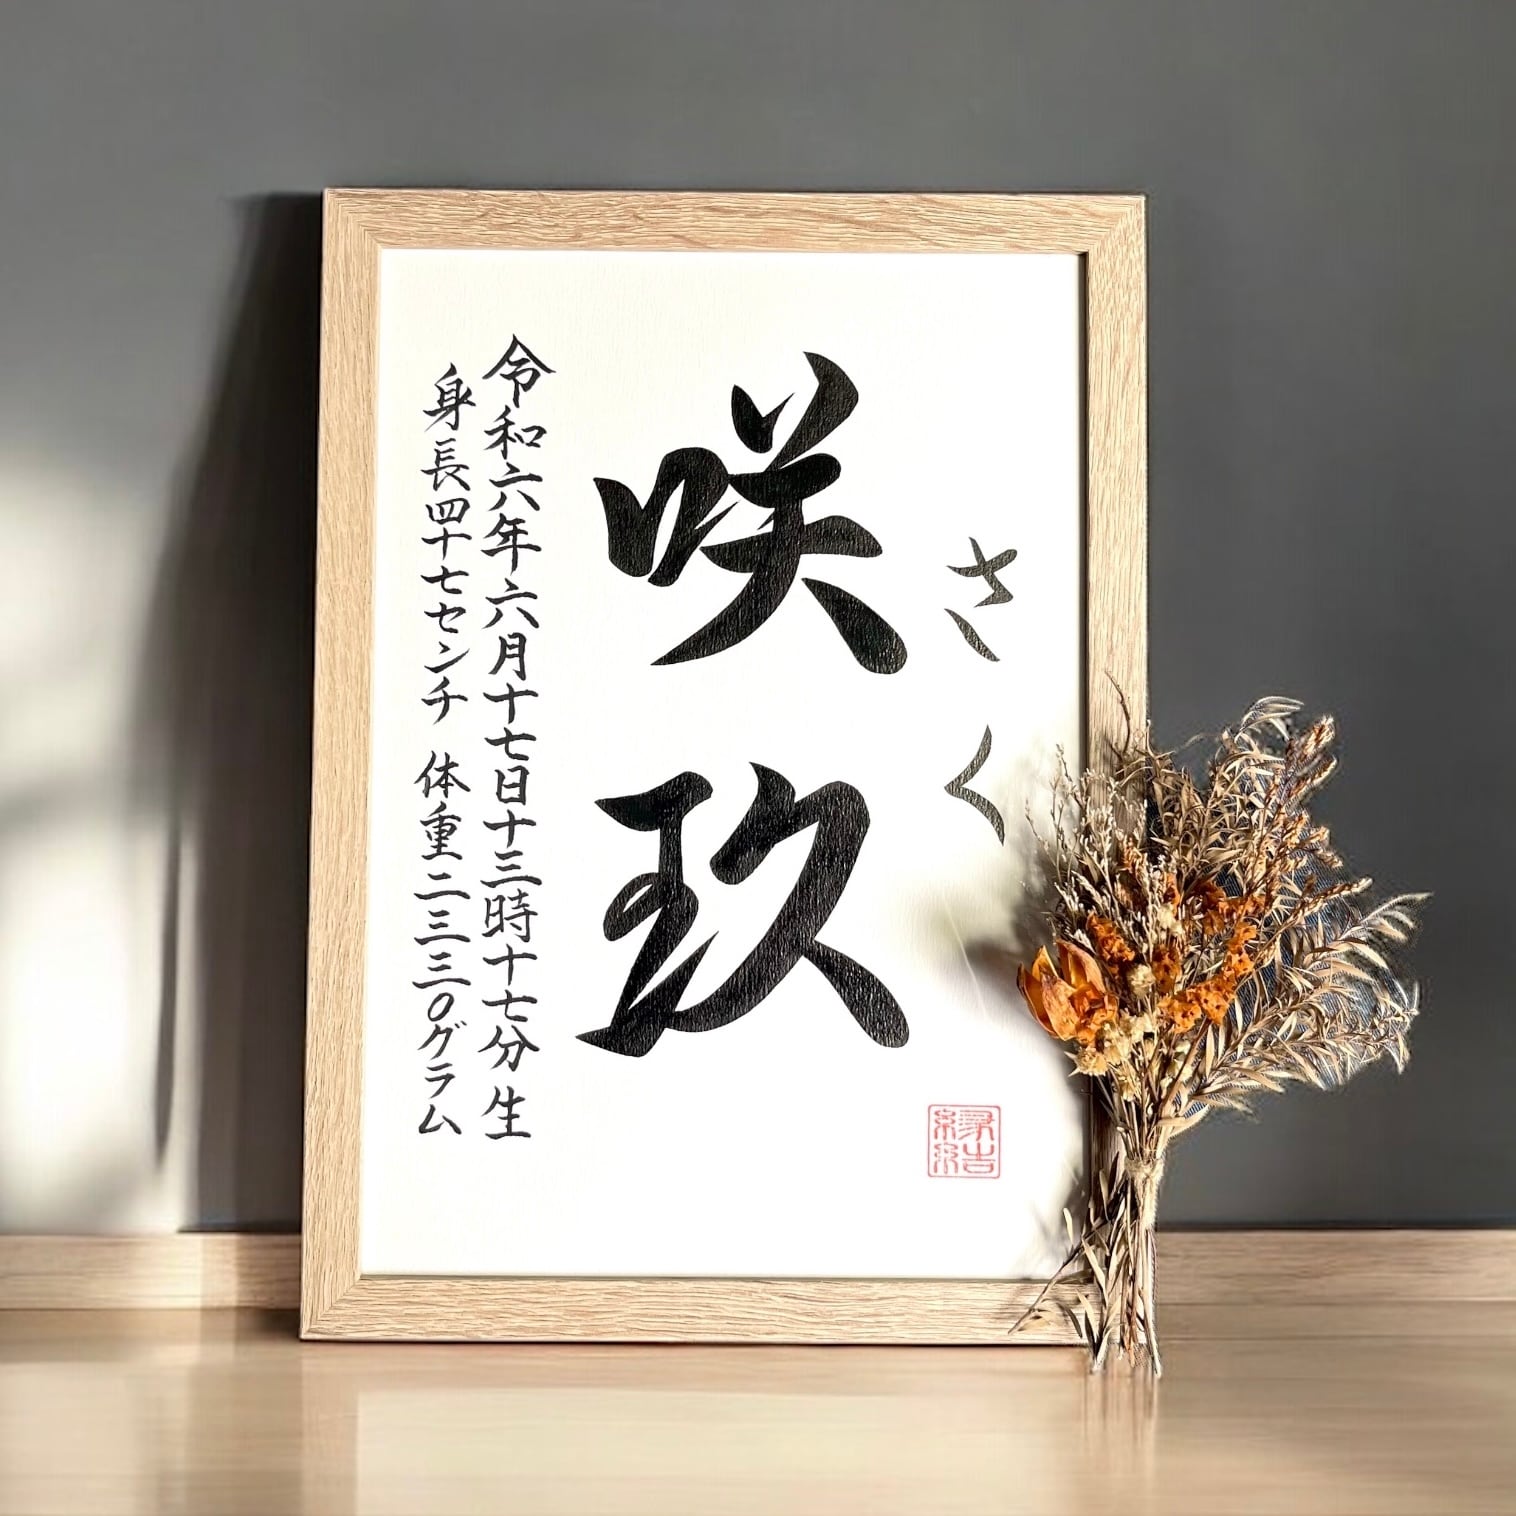 さく
咲玖
令和六年六月十七日十三時十七分生
身長四十七センチ 体重二三三〇グラム